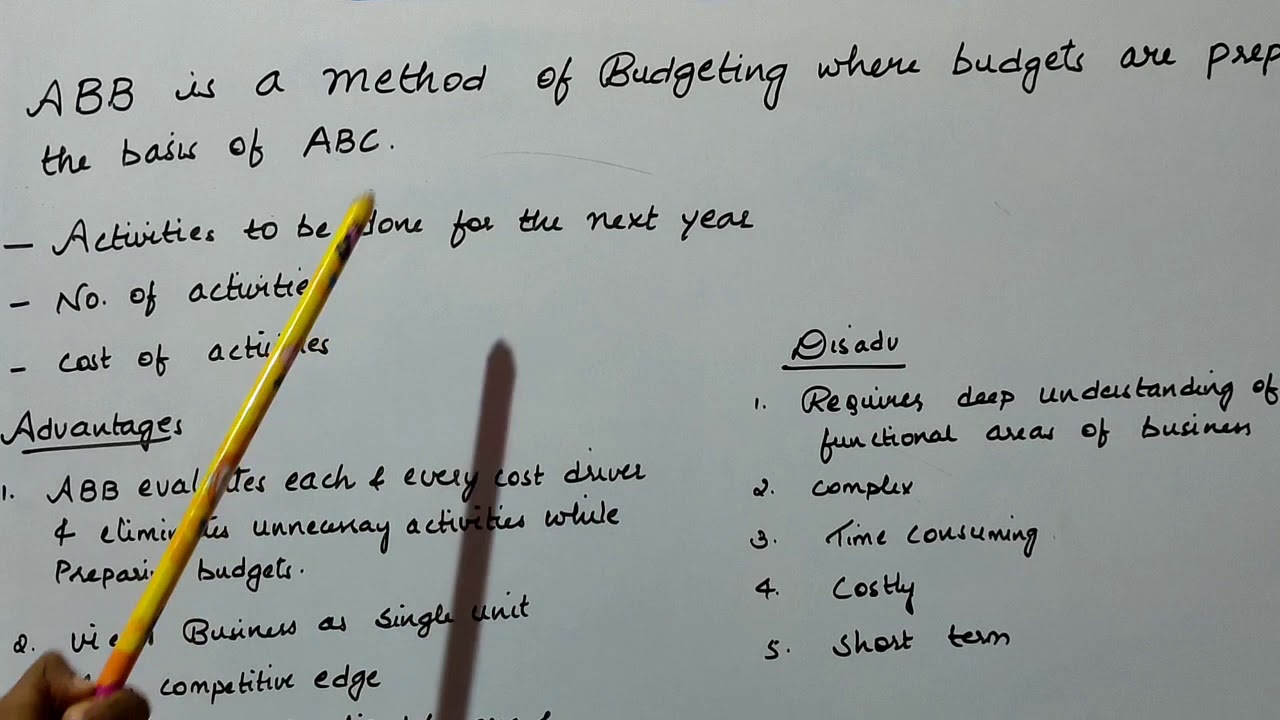 ABB is a method of Budgeting where budgets are prep
the basis of ABC.
- Activities to be done for the next year
- No. of activitie
- cost of activities
Advantages
1. ABB evaluates each & every cost driver
& eliminates unnecessary activities while
Preparing budgets.
2. view Business as single unit
competitive edge
Disadv
1. Requires deep understanding of
functional areas of business
2. complex
3. Time consuming
4. Costly
5. Short term